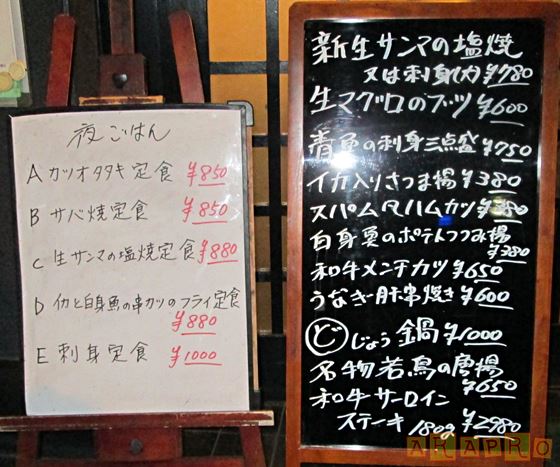 夜ごはん
A カツオタタキ定食 ¥850
B サバ焼定食 ¥850
C 生サンマの塩焼定食 ¥880
D イカと白身魚の串カツのフライ定食
¥880
E 刺身定食 ¥1000
新生サンマの塩焼
又は刺身(大)¥780
生マグロのブツ ¥600
青魚の刺身三点盛 ¥750
イカ入りさつま揚 ¥380
スパムハムカツ
白身魚のポテトつつみ揚
¥380
和牛メンチカツ ¥650
うなぎ一本串焼き ¥600
どじょう鍋 ¥1000
名物若鳥の唐揚
¥650
和牛サーロイン
ステーキ 180g ¥2980
AKAPRO